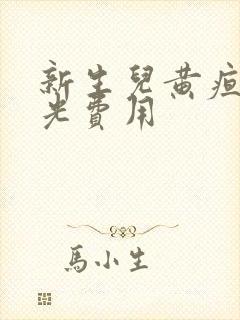 新生兒黃疸
光費用
馬小生